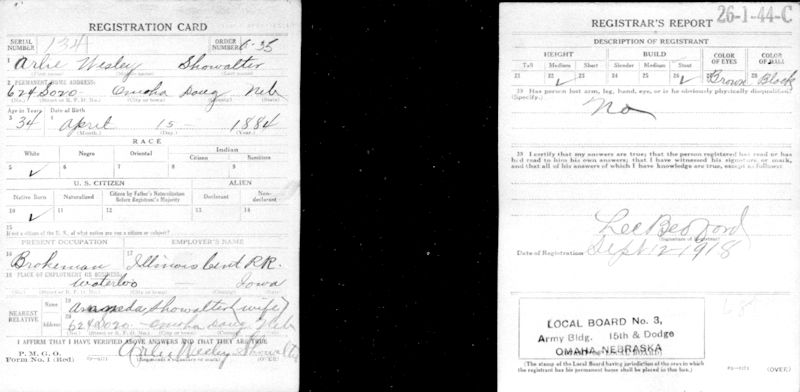 REGISTRATION CARD
SERIAL NUMBER 134 ORDER NUMBER
1 Arlie Wesley Showalter
(First name) (Middle name) (Last name)
2 PERMANENT HOME ADDRESS:
624 So 20 Omaha Doug Neb
(No.) (Street or R. F. D. No.) (City or town) (County) (State)
Age in Years Date of Birth
3 34 4 April 15 - 1884
(Month.) (Day.) (Year.)
RACE
White Negro Oriental Indian
Citizen Noncitizen
5 ✓ 6 7 8 9
U. S. CITIZEN ALIEN
Native Born Naturalized Citizen by Father's Naturalization Before Registrant's Majority Declarant Non-declarant
10 ✓ 11 12 13 14
15
If not a citizen of the U. S., of what nation are you a citizen or subject?
PRESENT OCCUPATION EMPLOYER'S NAME
16 Brakeman 17 Illinois Cent RR.
18 PLACE OF EMPLOYMENT OR BUSINESS:
Waterloo Iowa
(No.) (Street or R. F. D. No.) (City or town) (County) (State)
NEAREST RELATIVE Name 19 Showalter (wife)
Address 20 624 So 20 - Omaha Doug Neb
(No.) (Street or R. F. D. No.) (City or town) (County) (State)
I AFFIRM THAT I HAVE VERIFIED ABOVE ANSWERS AND THAT THEY ARE TRUE
P. M. G. O.
Form No. 1 (Red) Arlie Wesley Showalter
(Registrant's signature or mark) (OVER)
REGISTRAR'S REPORT 26-1-44-C
DESCRIPTION OF REGISTRANT
HEIGHT BUILD COLOR OF EYES COLOR OF HAIR
Tall Medium Short Slender Medium Stout
21 22 ✓ 23 24 25 26 ✓ 27 Brown 28 Black
29 Has person lost arm, leg, hand, eye, or is he obviously physically disqualified?
(Specify.) No
30 I certify that my answers are true; that the person registered has read or has
had read to him his own answers; that I have witnessed his signature or mark,
and that all of his answers of which I have knowledge are true, except as follows:
Lee Bedford
(Signature of Registrar)
Date of Registration Sept 12 1918
LOCAL BOARD No. 3,
Army Bldg. 15th & Dodge
OMAHA, NEBRASKA
(The stamp of the Local Board having jurisdiction of the area in which
the registrant has his permanent home shall be placed in this box.)
(OVER)